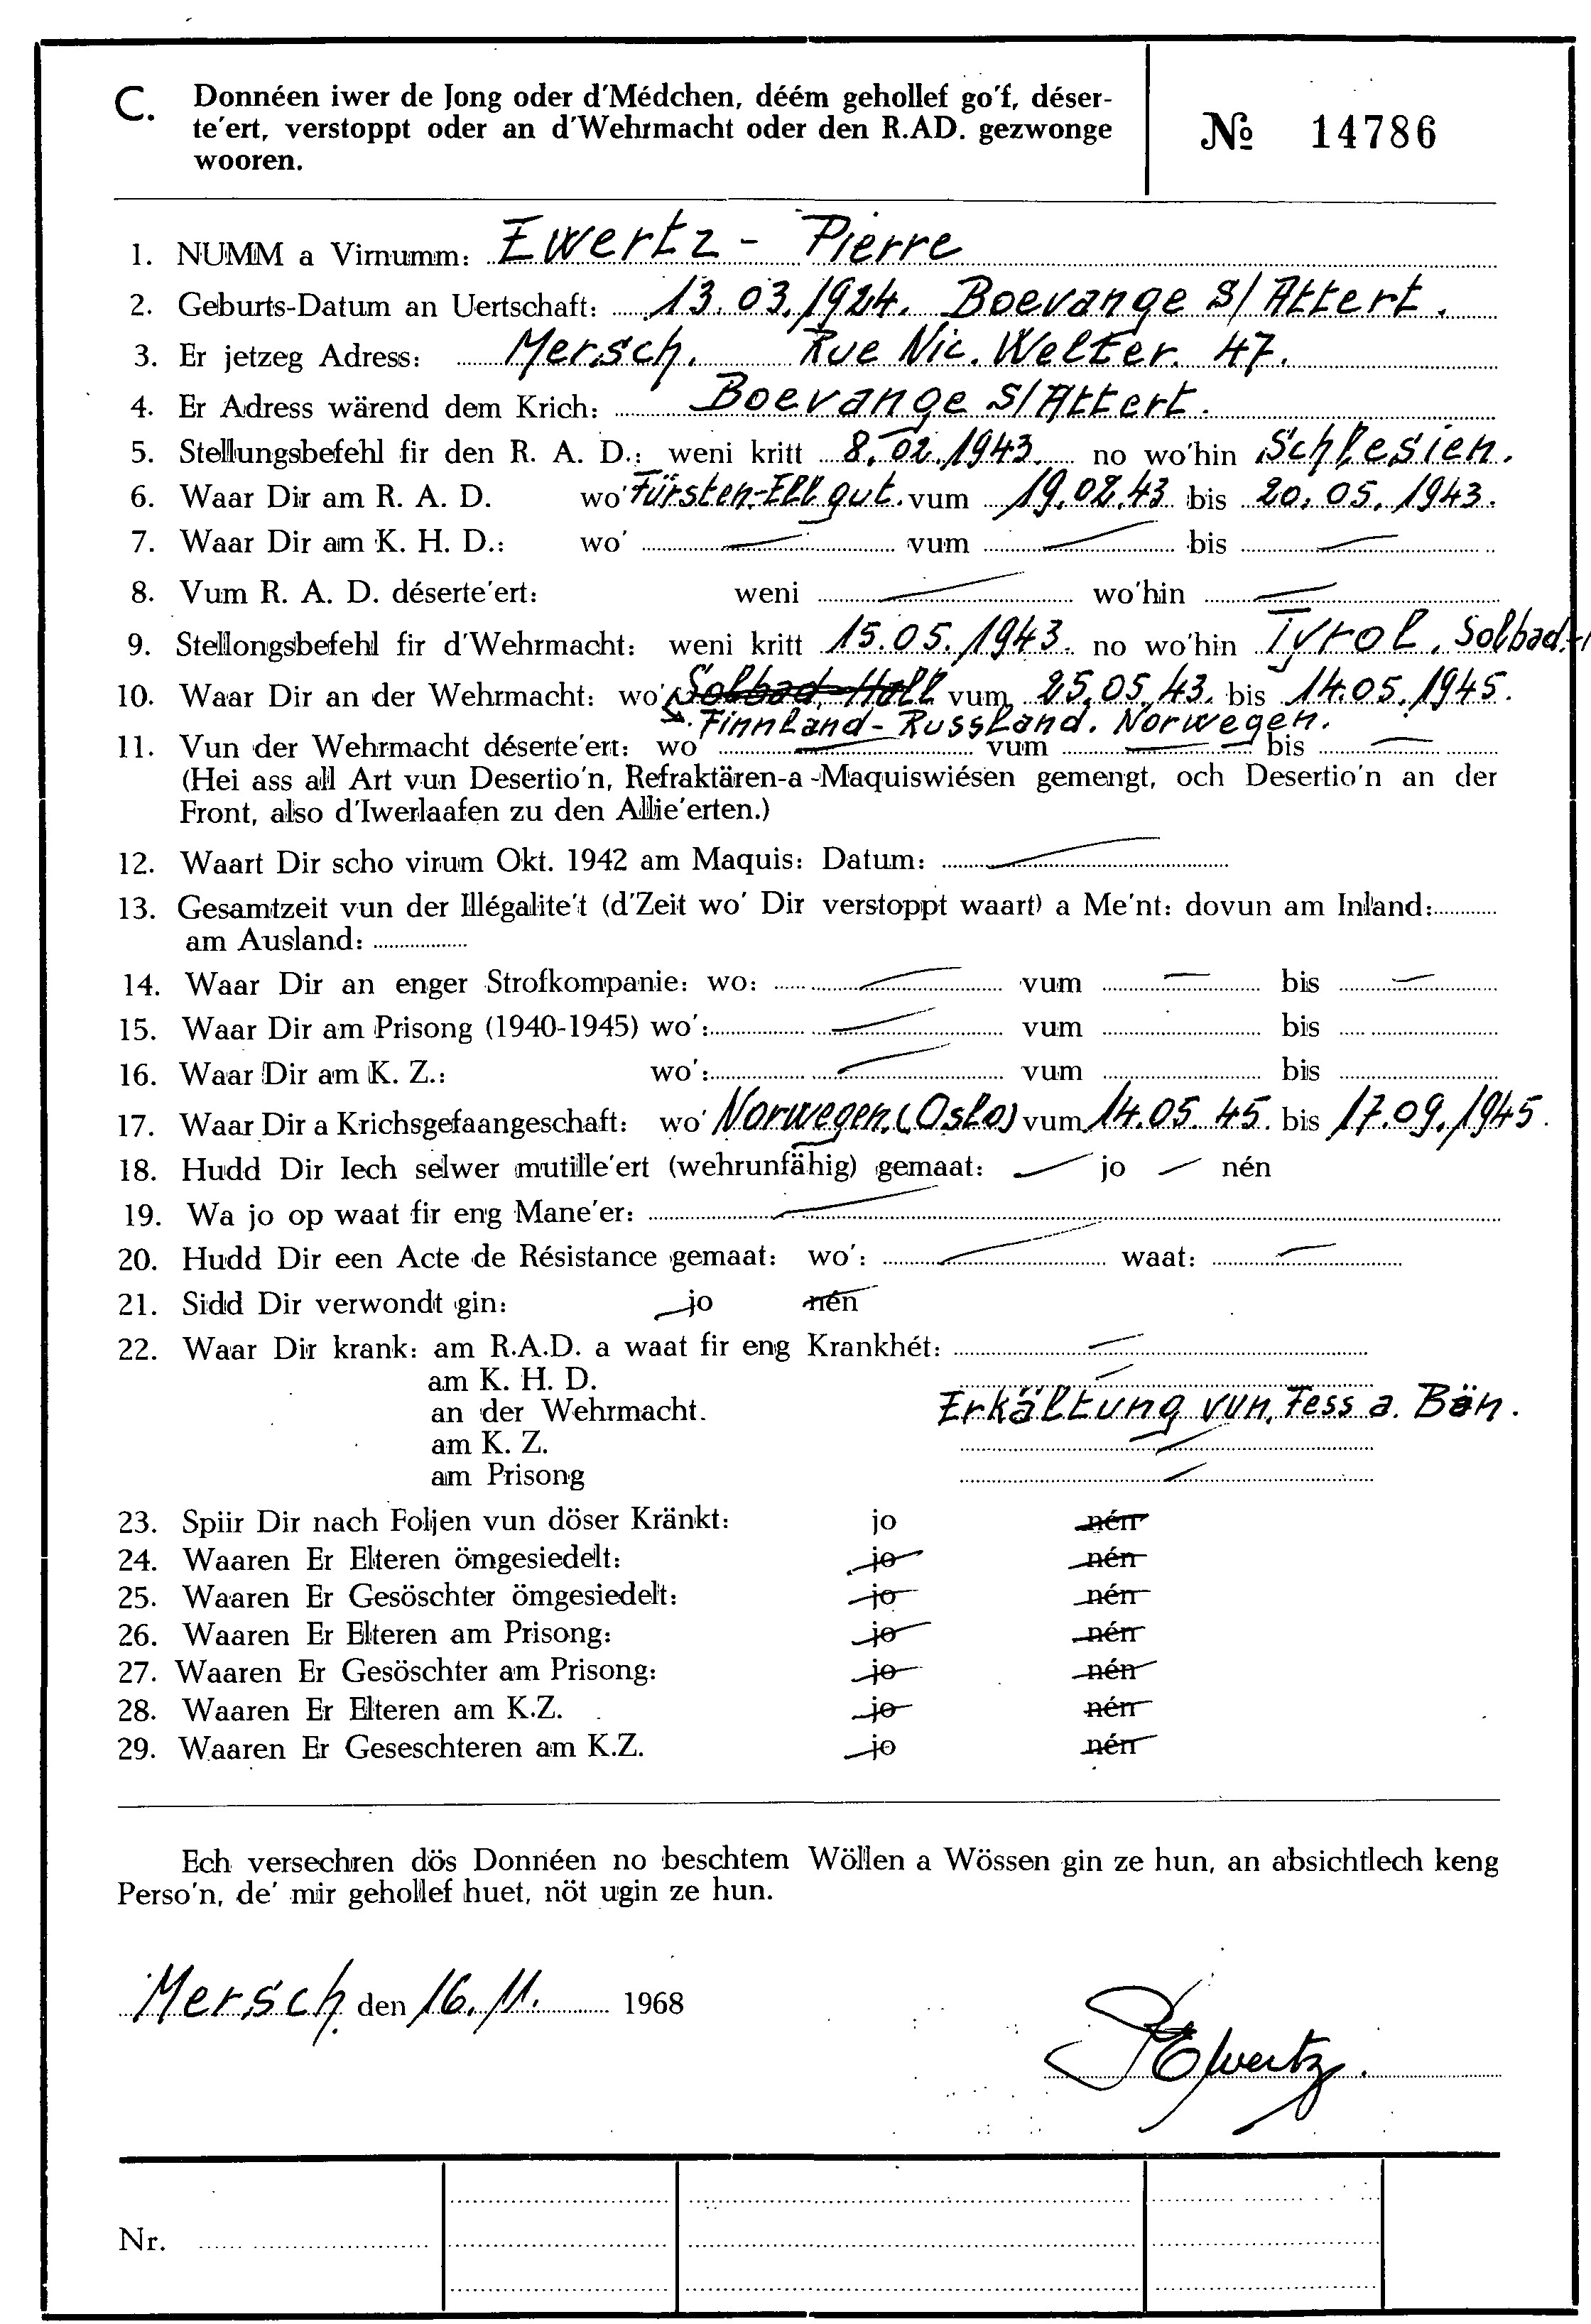 C. Donnéen iwer de Jong oder d'Médchen, déém gehollef go'f, déser-
te'ert, verstoppt oder an d'Wehrmacht oder den R.AD. gezwonge
wooren.
№ 14786
1. NUMM a Virnumm: Ewertz - Pierre
2. Geburts-Datum an Uertschaft: 13.03.1924. Boevange s/Attert.
3. Er jetzeg Adress: Mersch. Rue Nic. Welter. 47.
4. Er Adress wärend dem Krich: Boevange s/Attert.
5. Stellungsbefehl fir den R. A. D.: weni kritt 8.02.1943. no wo'hin Schlesien.
6. Waar Dir am R. A. D. wo' Fürsten-Ellgut. vum 19.02.43 bis 20.05.1943.
7. Waar Dir am K. H. D.: wo' vum bis
8. Vum R. A. D. déserte'ert: weni wo'hin
9. Stellongsbefehl fir d'Wehrmacht: weni kritt 15.05.1943. no wo'hin Tyrol. Solbad-
10. Waar Dir an der Wehrmacht: wo' Solbad-Hall vum 25.05.43. bis 14.05.1945.
Finnland-Russland. Norwegen.
11. Vun der Wehrmacht déserte'ert: wo' vum bis
(Hei ass all Art vun Desertio'n, Refraktären-a-Maquiswiésen gemengt, och Desertio'n an der
Front, also d'Iwerlaafen zu den Allie'erten.)
12. Waart Dir scho virum Okt. 1942 am Maquis: Datum:
13. Gesamtzeit vun der Illégalite't (d'Zeit wo' Dir verstoppt waart) a Me'nt: dovun am Inland:
am Ausland:
14. Waar Dir an enger Strofkompanie: wo: vum bis
15. Waar Dir am Prisong (1940-1945) wo': vum bis
16. Waar Dir am K. Z.: wo': vum bis
17. Waar Dir a Krichsgefaangeschaft: wo' Norwegen.(Oslo) vum 14.05.45. bis 17.09.1945.
18. Hudd Dir Iech selwer mutille'ert (wehrunfähig) gemaat: jo nén
19. Wa jo op waat fir eng Mane'er:
20. Hudd Dir een Acte de Résistance gemaat: wo': waat:
21. Sidd Dir verwondt gin: jo nén
22. Waar Dir krank: am R.A.D. a waat fir eng Krankhét:
am K. H. D.
an der Wehrmacht. Erkältung vun. Fess a. Bän.
am K. Z.
am Prisong
23. Spiir Dir nach Foljen vun döser Kränkt: jo nén
24. Waaren Er Elteren ömgesiedelt: jo nén
25. Waaren Er Gesöschter ömgesiedelt: jo nén
26. Waaren Er Elteren am Prisong: jo nén
27. Waaren Er Gesöschter am Prisong: jo nén
28. Waaren Er Elteren am K.Z. jo nén
29. Waaren Er Geseschteren am K.Z. jo nén
Ech versechren dös Donnéen no beschtem Wöllen a Wössen gin ze hun, an absichtlech keng
Perso'n, de' mir gehollef huet, nöt ugin ze hun.
Mersch den 16.11. 1968
PEwertz.
Nr.